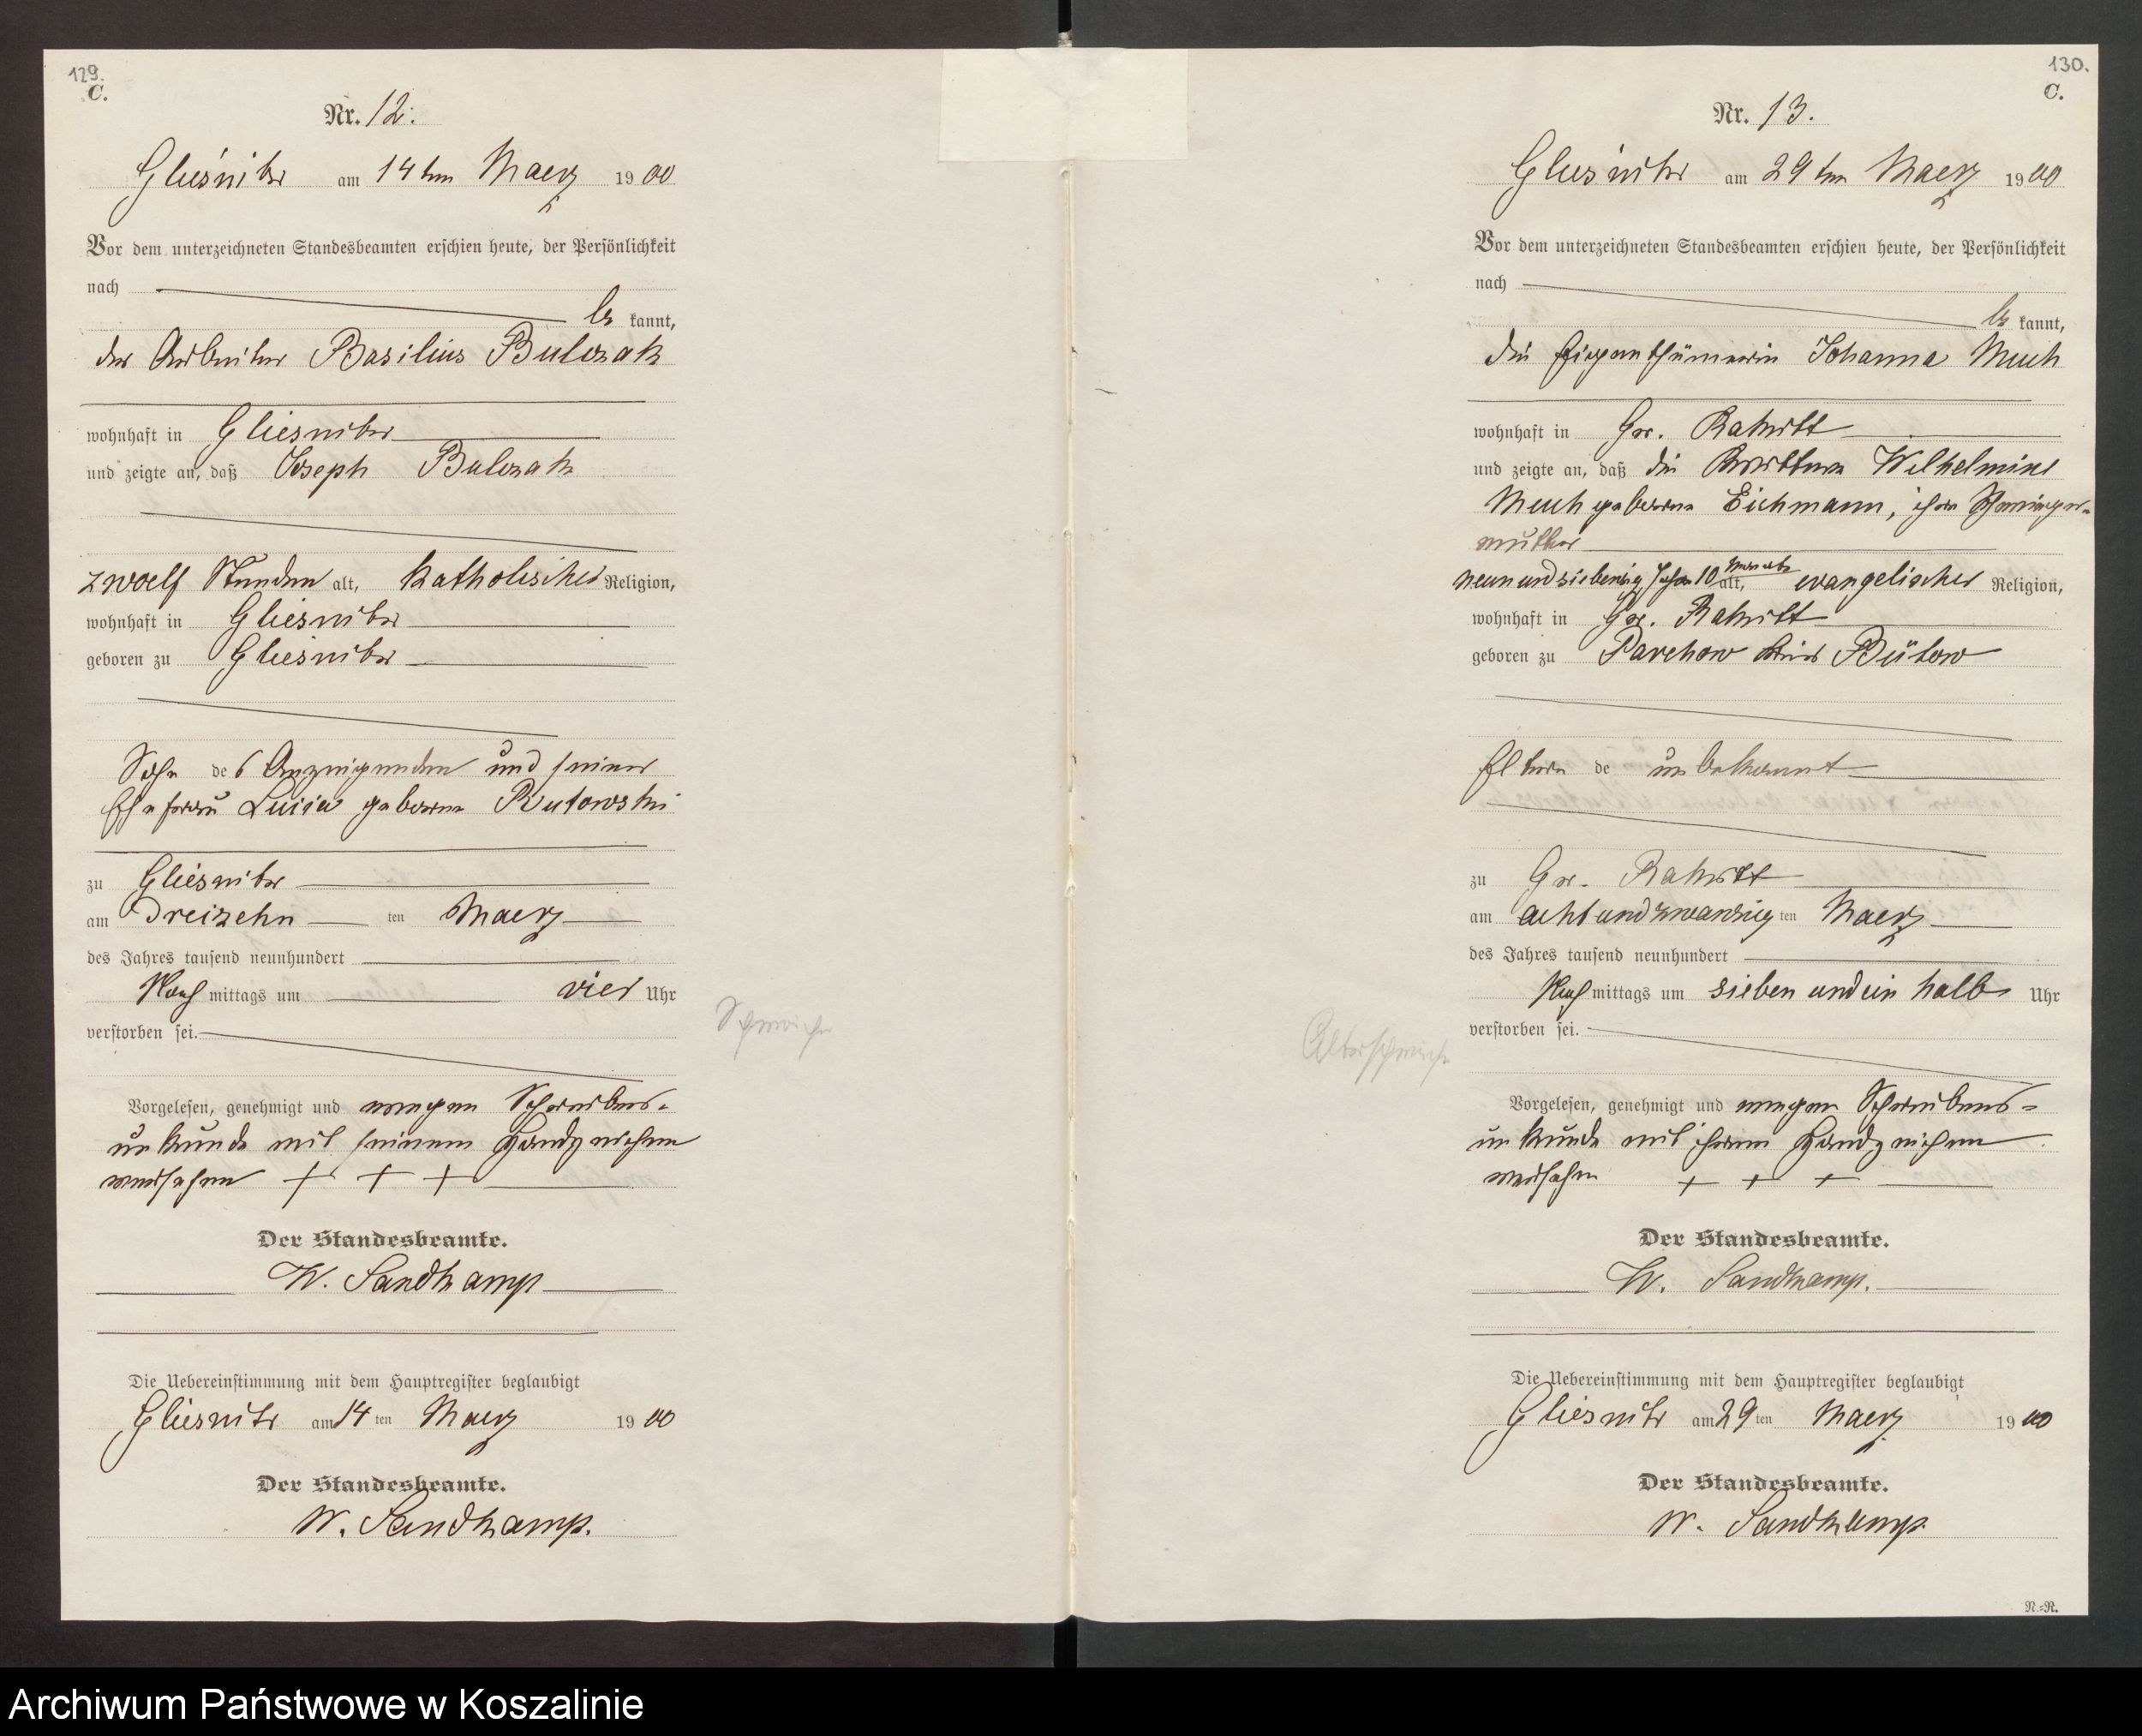 129.
C.
Nr. 12.
Gliesnitz am 14ten Maerz 1900
Vor dem unterzeichneten Standesbeamten erschien heute, der Persönlichkeit
nach
be kannt,
der Arbeiter Basilius Bulczak
wohnhaft in Gliesnitz
und zeigte an, daß Joseph Bulczak
zwoelf Stunden alt, katholischer Religion,
wohnhaft in Gliesnitz
geboren zu Gliesnitz
Sohn des Anzeigenden und seiner
Ehefrau Luisa geborene Rutowski
zu Gliesnitz
am Dreizehn ten Maerz
des Jahres tausend neunhundert
Nach mittags um vier Uhr
verstorben sei.
Schwäche
Vorgelesen, genehmigt und wegen Schreibens-
unkunde mit seinem Handzeichen
versehen + + +
Der Standesbeamte.
W. Sandkamp
Die Uebereinstimmung mit dem Hauptregister beglaubigt
Gliesnitz am 14ten Maerz 1900
Der Standesbeamte.
W. Sandkamp.
130.
C.
Nr. 13.
Gliesnitz am 29ten Maerz 1900
Vor dem unterzeichneten Standesbeamten erschien heute, der Persönlichkeit
nach
be kannt,
die Eigenthümerin Johanna Much
wohnhaft in Gr.
und zeigte an, daß die Wilhelmine
Much geborene Eichmann, ihre Schwieger-
mutter
neunundsiebenzig Jahre 10 Monate alt, evangelischer Religion,
wohnhaft in Gr.
geboren zu Parchow Kreis Bütow
Eltern de unbekannt
zu Gr.
am achtundzwanzig ten Maerz
des Jahres tausend neunhundert
Nach mittags um sieben undein halb Uhr
verstorben sei.
Altersschwäche
Vorgelesen, genehmigt und wegen Schreibens-
unkunde mit ihrem Handzeichen
versehen + + +
Der Standesbeamte.
W. Sandkamp.
Die Uebereinstimmung mit dem Hauptregister beglaubigt
Gliesnitz am 29ten Maerz 1900
Der Standesbeamte.
W. Sandkamp.
N.-R.
Archiwum Państwowe w Koszalinie